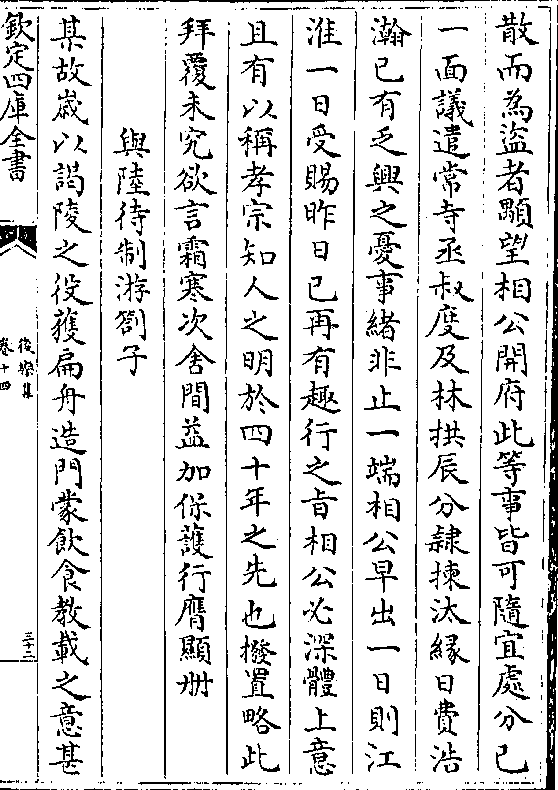 散而為盜者顒望相公開府此等事皆可隨宜處分已
一面議遣常寺丞叔度及林拱辰分隸揀汰緣日費浩
瀚已有乏興之憂事緒非止一端相公早出一日則江
淮一日受賜昨日已再有趣行之旨相公必深體上意
且有以稱孝宗知人之明於四十年之先也撥置略此
拜覆未究欲言霜寒次舍間益加保護行膺顯册
與陸待制游劄子
某故歲以謁陵之役獲扁舟造門蒙飲食教載之意甚
欽定四庫全書
後樂集
卷十四
三十二